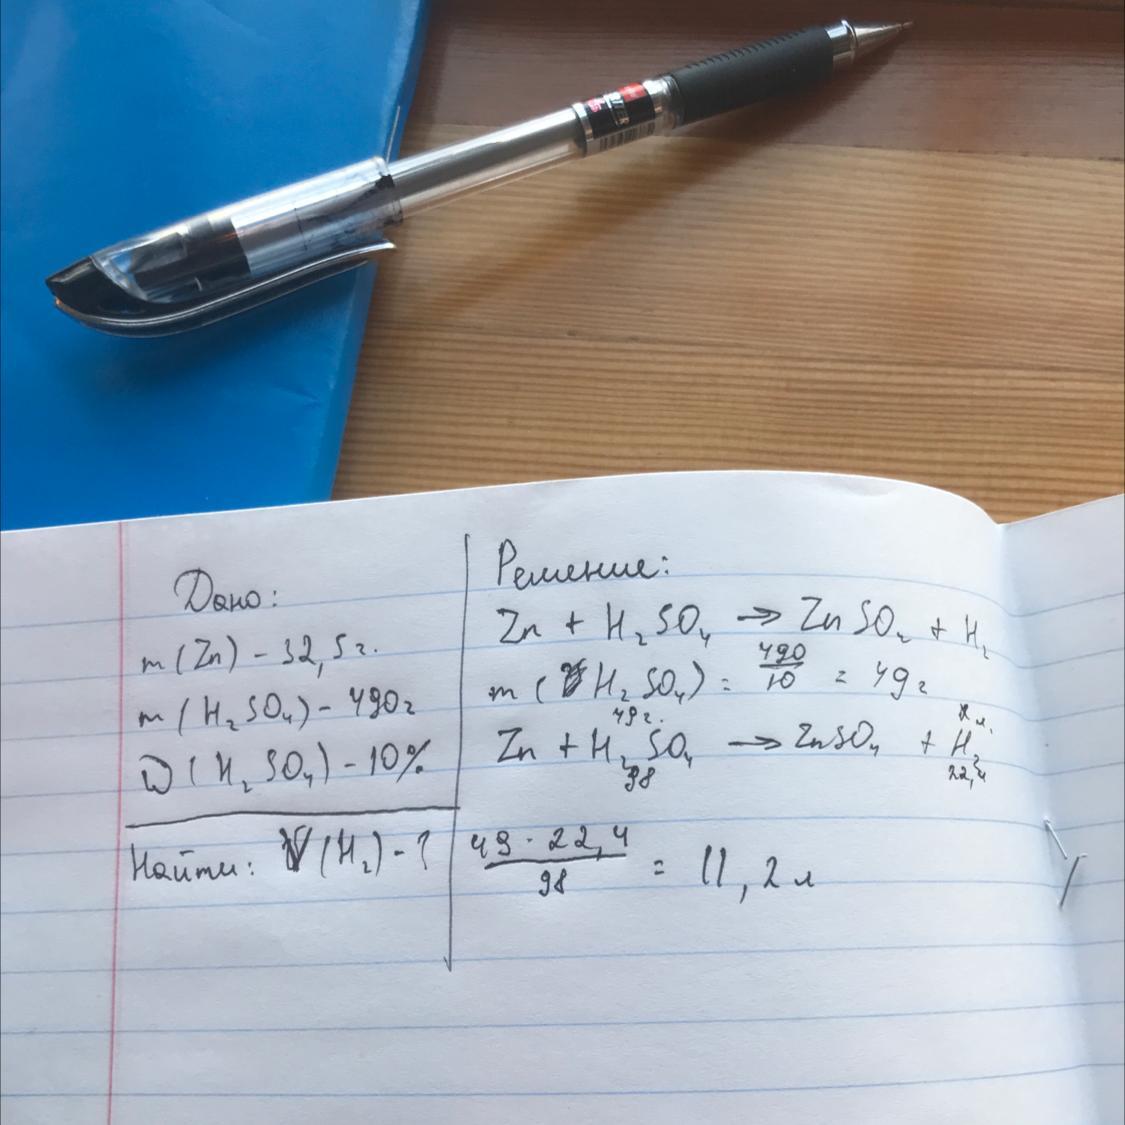 Дано:
m (Zn) - 32,5 г.
m (H2SO4) - 490 г
W (H2SO4) - 10%
Найти: V (H2) - ?
Решение:
Zn + H2SO4 → ZnSO4 + H2
m (H2SO4) = 490/10 = 49 г
49 г. x л.
Zn + H2SO4 → ZnSO4 + H2
98 22,4
49 · 22,4 / 98 = 11,2 л